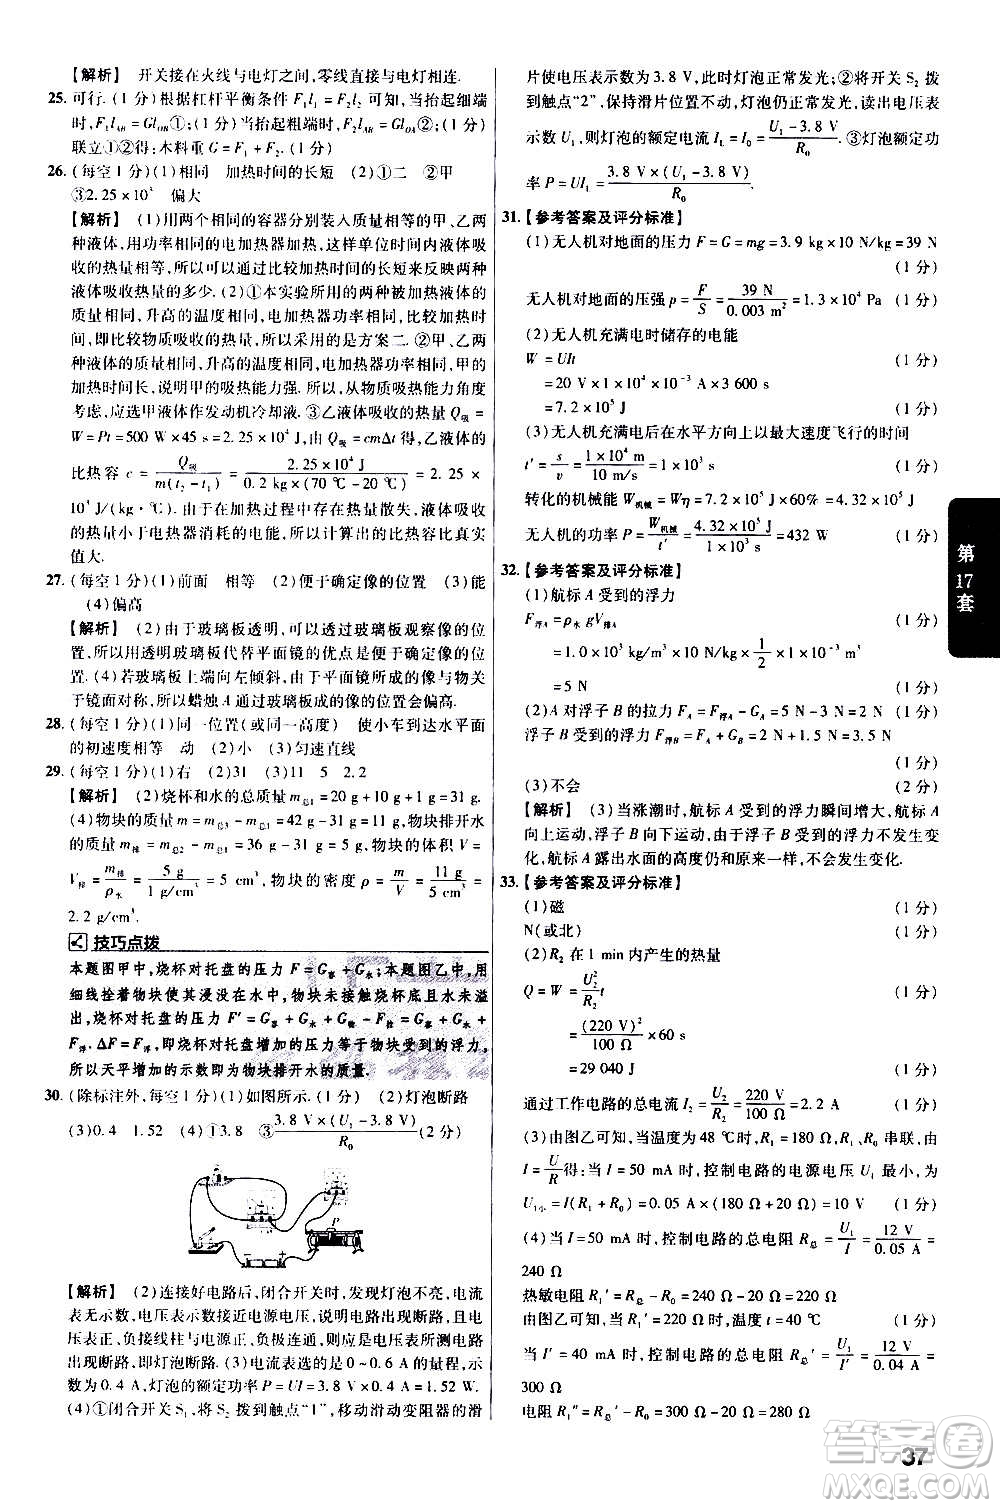 【解析】 开关接在火线与电灯之间,零线直接与电灯相连.
25. 可行. (1 分)根据杠杆平衡条件 F₁l₁ = F₂l₂ 可知,当抬起细端
时,F₁l_AB = Gl_OB①;(1 分)当抬起粗端时,F₂l_AB = Gl_OA②;(1 分)
联立①②得:木料重 G = F₁ + F₂. (1 分)
26. (每空 1 分)(1)相同 加热时间的长短 (2)①二 ②甲
③2.25 × 10³ 偏大
【解析】 (1)用两个相同的容器分别装入质量相等的甲、乙两
种液体,用功率相同的电加热器加热,这样单位时间内液体吸
收的热量相等,所以可以通过比较加热时间的长短来反映甲、乙两种
液体吸收热量的多少. (2)①本实验所用的两种被加热液体质量
相同,升高的温度相同,电加热器功率相同,只是加热时间不
同,即比较物质吸收的热量,所以属于方案二. ②甲、乙两种液
体的质量相同,升高的温度相同,电加热器功率相同,甲的
加热时间长,说明甲的吸热能力强. 所以,从物质吸热能力角度
考虑,应选甲液体作发动机冷却液. ③乙液体吸收的热量 Q吸 =
W = Pt = 500 W × 45 s = 2.25 × 10⁴ J,由 Q吸 = cmΔt 可得,乙液体的
比热容 c = Q吸/m(t₂ - t₁) = 2.25 × 10⁴ J/0.2 kg × (70 ℃ - 20 ℃) = 2.25 ×
10³ J/(kg·℃). 由于加热过程中存在热量散失,实际吸收的热
量小于电热器消耗的电能,所以计算出的比热容比真实
值大.
27. (每空 1 分)(1)前面 相等 (2)便于确定像的位置 (3)能
(4)偏高
【解析】 (2)由于玻璃板透明,可以透过玻璃板观察像的位
置,所以用透明玻璃板代替平面镜的优点是便于确定像的位
置. (4)若玻璃板上端向左倾斜,由于平面镜所成的像与物关
于镜面对称,所以蜡烛 A 通过玻璃板成的像的位置会偏高.
28. (每空 1 分)(1)同一位置(或同一高度) 使小车到达水平面
的初速度相等 动 (2)小 (3)匀速直线
29. (每空 1 分)(1)右 (2)31 (3)11 5 2.2
【解析】 (2)烧杯和水的总质量 m总1 = 20 g + 10 g + 1 g = 31 g.
(4)物块的质量 m = m总3 - m总1 = 42 g - 31 g = 11 g,物块排开水
的质量 m排 = m总2 - m总1 = 36 g - 31 g = 5 g,物块的体积 V =
V排 = m排/ρ水 = 5 g/1 g/cm³ = 5 cm³,物块的密度 ρ = m/V = 11 g/5 cm³ =
2.2 g/cm³.
技巧点拨
本题图甲中,烧杯对托盘的压力 F = G容 + G水;本题图乙中,用
细线拴着物块使其浸没在水中,物块未接触烧杯底且水未溢
出,烧杯对托盘的压力 F′ = G容 + G水 + G物 - F拉 = G容 + G水 +
F浮. ΔF = F浮,即烧杯对托盘增加的压力等于物块受到的浮力,
所以天平增加的示数即为物块排开水的质量.
30. (除标注外,每空 1 分)(1)如图所示. (2)灯泡断路
(3)0.4 1.52 (4)①3.8 ③3.8 V × (U₁ - 3.8 V)/R₀ (2 分)
P
【解析】 (2)连接好电路后,闭合开关时,发现灯泡不亮,电流
表无示数,电压表示数接近电源电压,说明电路出现断路,且电
压表正、负接线柱与电源正、负极连通,则应是电压表所测电路
出现断路,即灯泡断路. (3)电流表选的是 0~0.6 A 的量程,示
数为 0.4 A,灯泡的额定功率 P = UI = 3.8 V × 0.4 A = 1.52 W.
(4)①闭合开关 S₁,将 S₂ 拨到触点“1”,移动滑动变阻器的滑
片使电压表示数为 3.8 V,此时灯泡正常发光;②将开关 S₂ 拨
到触点“2”,保持滑片位置不动,灯泡仍正常发光,读出电压表
示数 U₁,则灯泡的额定电流 I_L = I₀ = U₁ - 3.8 V/R₀;③灯泡额定功
率 P = UI_L = 3.8 V × (U₁ - 3.8 V)/R₀.
31. 【参考答案及评分标准】
(1)无人机对地面的压力 F = G = mg = 3.9 kg × 10 N/kg = 39 N
(1 分)
无人机对地面的压强 p = F/S = 39 N/0.003 m² = 1.3 × 10⁴ Pa (1 分)
(2)无人机充满电时储存的电能
W = UIt (1 分)
= 20 V × 1 × 10⁴ × 10⁻³ A × 3 600 s
= 7.2 × 10⁵ J (1 分)
(3)无人机充满电后在水平方向上以最大速度飞行的时间
t′ = s/v = 1 × 10⁴ m/10 m/s = 1 × 10³ s (1 分)
转化的机械能 W机械 = Wη = 7.2 × 10⁵ J × 60% = 4.32 × 10⁵ J
无人机的功率 P = W机械/t′ = 4.32 × 10⁵ J/1 × 10³ s = 432 W (1 分)
32. 【参考答案及评分标准】
(1)航标 A 受到的浮力
F浮A = ρ水 gV排A (1 分)
= 1.0 × 10³ kg/m³ × 10 N/kg × 1/2 × 1 × 10⁻³ m³
= 5 N (1 分)
(2)A 对浮子 B 的拉力 F_A = F浮A - G_A = 5 N - 3 N = 2 N (1 分)
浮子 B 受到的浮力 F浮B = F_A + G_B = 2 N + 1.5 N = 3.5 N
(1 分)
(3)不会 (2 分)
【解析】 (3)当涨潮时,航标 A 受到的浮力瞬间增大,航标 A
向上运动,浮子 B 向下运动,由于浮子 B 受到的浮力不发生变
化,航标 A 露出水面的高度仍和原来一样,不会发生变化.
33. 【参考答案及评分标准】
(1)磁 (1 分)
N(或北) (1 分)
(2)R₂ 在 1 min 内产生的热量
Q = W = U₂²/R₂ t (1 分)
= (220 V)²/100 Ω × 60 s
= 29 040 J (1 分)
通过工作电路的总电流 I₂ = U₂/R₂ = 220 V/100 Ω = 2.2 A (1 分)
(3)由图乙可知,当温度为 48 ℃时,R₁ = 180 Ω,R₁、R₀ 串联,由
I = U/R 得:当 I = 50 mA 时,控制电路的电源电压 U₁ 最小,为
U₁小 = I(R₁ + R₀) = 0.05 A × (180 Ω + 20 Ω) = 10 V (1 分)
(4)当 I = 50 mA 时,控制电路的总电阻 R总 = U₁/I = 12 V/0.05 A =
240 Ω
热敏电阻 R₁′ = R总 - R₀ = 240 Ω - 20 Ω = 220 Ω
由图乙可知,当 R₁′ = 220 Ω 时,温度 t = 40 ℃ (1 分)
当 I′ = 40 mA 时,控制电路的总电阻 R总′ = U₁/I′ = 12 V/0.04 A =
300 Ω
电阻 R₁″ = R总′ - R₀ = 300 Ω - 20 Ω = 280 Ω
第17套
37
答案圈
MXQE.COM